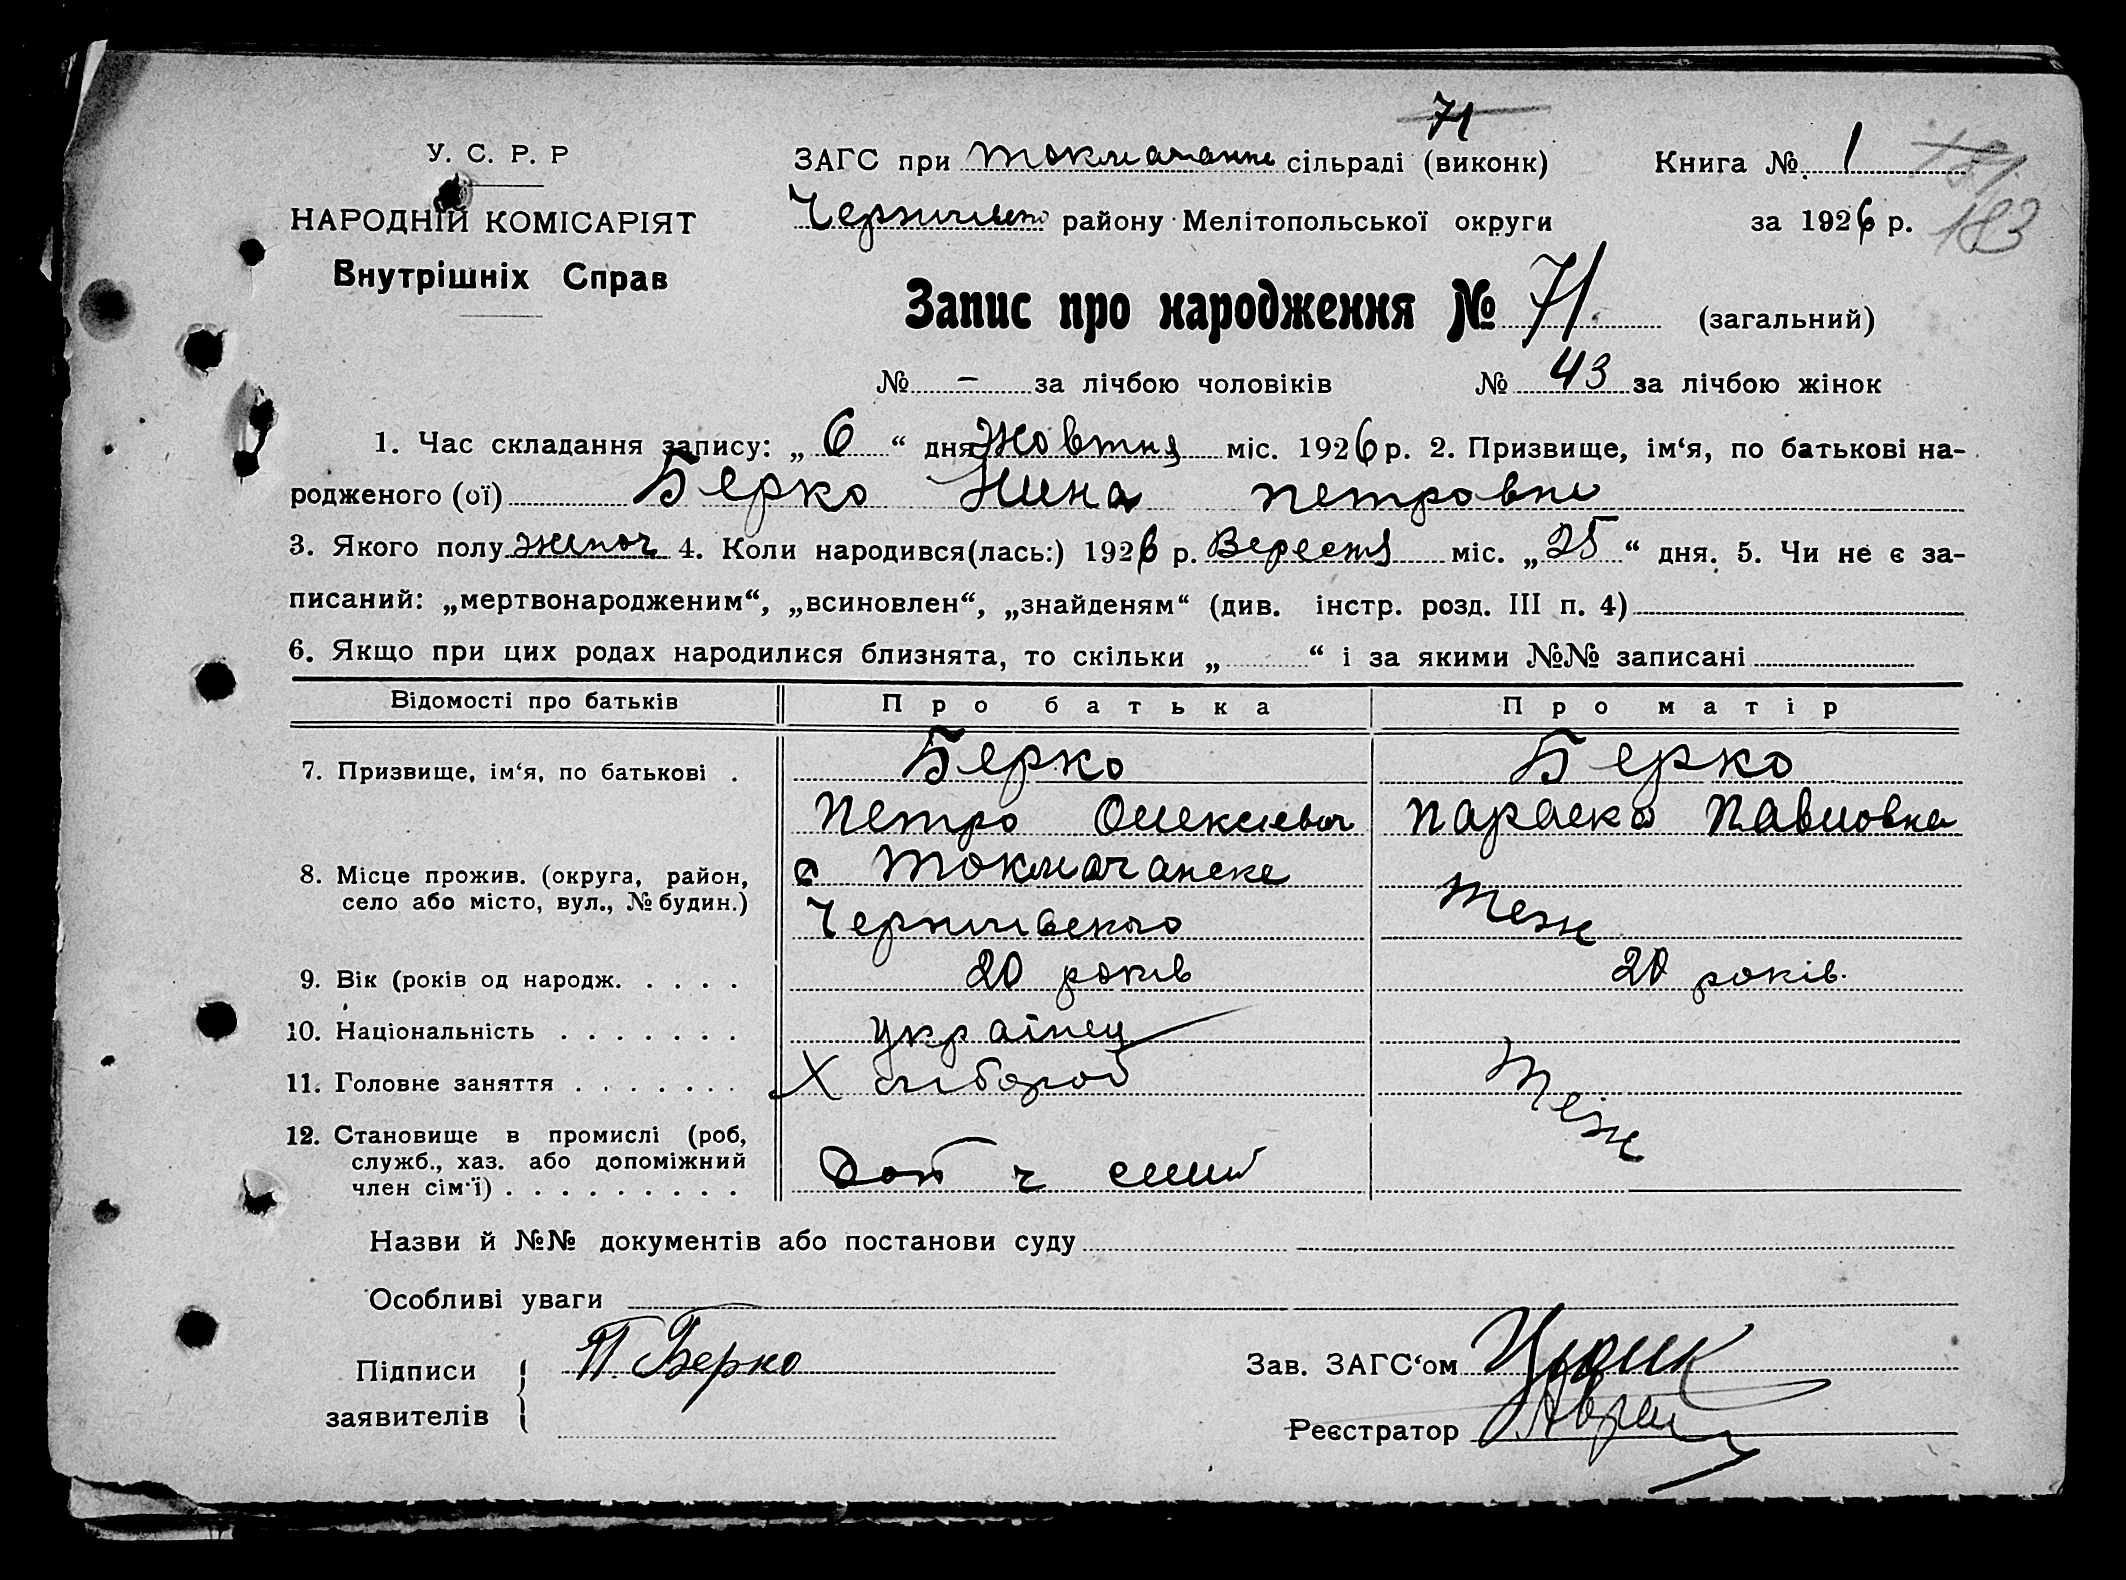 71
У. С. Р. Р
ЗАГС при Токмачанске сільраді (виконк) Книга № 1
183
НАРОДНІЙ КОМІСАРІЯТ району Мелітопольської округи за 1926 р.
Внутрішніх Справ
Запис про народження № 71 (загальний)
№ – за лічбою чоловіків № 43 за лічбою жінок
1. Час складання запису: „ 6 “ дня Жовтня міс. 1926 р. 2. Призвище, ім‘я, по батькові на-
родженого (ої) Берко Нина Петровна
3. Якого полу жіноч 4. Коли народився(лась:) 1926 р. Вересня міс. „ 25 “ дня. 5. Чи не є за-
писаний: „мертвонародженим“, „всиновлен“, „знайденям“ (див. інстр. розд. III п. 4)
6. Якщо при цих родах народилися близнята, то скільки „ “ і за якими №№ записані
Відомості про батьків Про батька Про матір
7. Призвище, ім‘я, по батькові . Берко Берко
Петро Олексієвич Параска Павловна
8. Місце прожив. (округа, район, с Токмачанске Теж
село або місто, вул., № будин.) Чернигівского
9. Вік (років од народж. . . . . 20 років 20 років.
10. Національність . . . . . . . українец
11. Головне заняття . . . . . . . Х хлібороб Теж
12. Становище в промислі (роб,
служб., хаз. або допоміжний
член сім‘ї) . . . . . . . . . Доп ч сімї
Назви й №№ документів або постанови суду
Особливі уваги
Підписи П Берко Зав. ЗАГС‘ом
заявителів Реєстратор